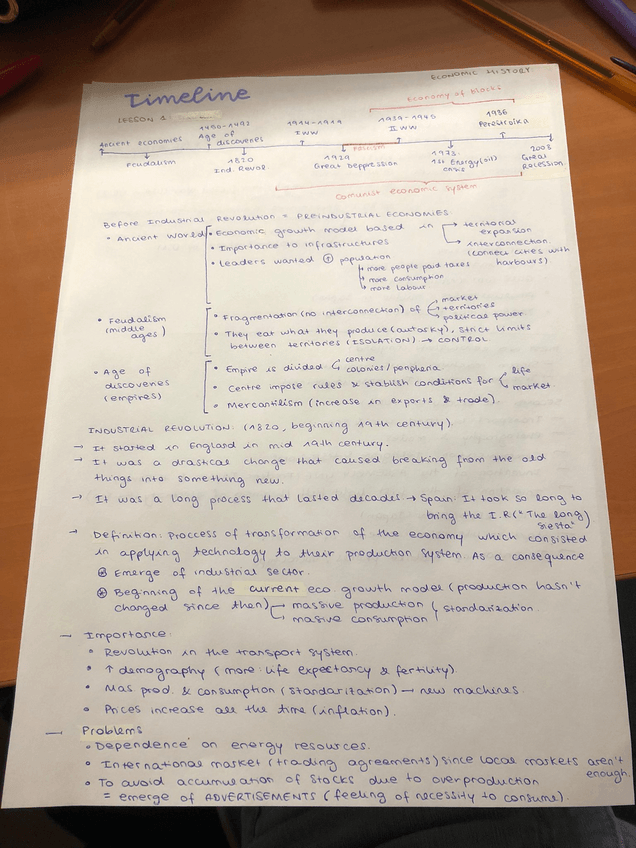 ECONOMIC HISTORY
Timeline
LESSON 1
Economy of blocks
1490-1492
Age of
discoveries
1914-1919
I WW
1939-1945
II WW
1986
Perestroika
Ancient economies
Fascism
Feudalism
1820
Ind. Revol
1929
Great Depression
1973
1st Energy (oil)
crisis
2008
Great
Recession
Comunist economic system
Before Industrial Revolution = PREINDUSTRIAL ECONOMIES
• Ancient World
• Economic growth model based in → territorial expansion
→ interconnection (connect cities with harbours)
• Importance to infrastructures
• Leaders wanted ↑ population
→ more people paid taxes
→ more consumption
→ more labour
• Feudalism
(middle ages)
• Fragmentation (no interconnection) of → market
→ territories
→ political power
• They eat what they produce (autarky), strict limits
between territories (ISOLATION) → CONTROL
• Age of
discoveries
(empires)
• Empire is divided centre
colonies/peripheria
• Centre impose rules & stablish conditions for life
market
• Mercantilism (increase in exports & trade)
INDUSTRIAL REVOLUTION: (1820, beginning 19th century)
→ It started in England in mid 19th century.
→ It was a drastical change that caused breaking from the old
things into something new.
→ It was a long process that lasted decades → Spain: It took so long to
bring the I.R ("The long siesta")
→ Definition: Proccess of transformation of the economy which consisted
in applying technology to their production system. As a consequence
⊛ Emerge of industrial sector.
⊛ Beginning of the current eco. growth model (production hasn't
changed since then) massive production
massive consumption standarization
→ Importance:
• Revolution in the transport system.
• ↑ demography (more life expectancy & fertility).
• Mas prod. & consumption (standaritation) → new machines
• Prices increase all the time (inflation).
→ Problems
• Dependence on energy resources.
• International market (trading agreements) since local markets aren't
enough
• To avoid accumulation of stocks due to overproduction
= emerge of ADVERTISEMENTS (feeling of necessity to consume).